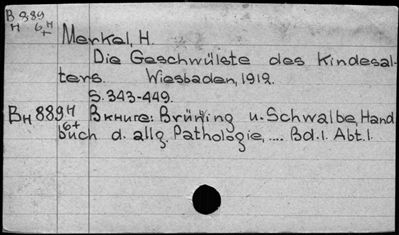 B 889
H 6H
+
Merkel, H.
Die Geschwülste des Kindesal-
ters. Wiesbaden, 1912.
S. 343-449.
BH 889H Вкниге: Brüning u. Schwalbe, Hand
6+ buch d. allg. Pathologie, .... Bd. 1. Abt. 1.